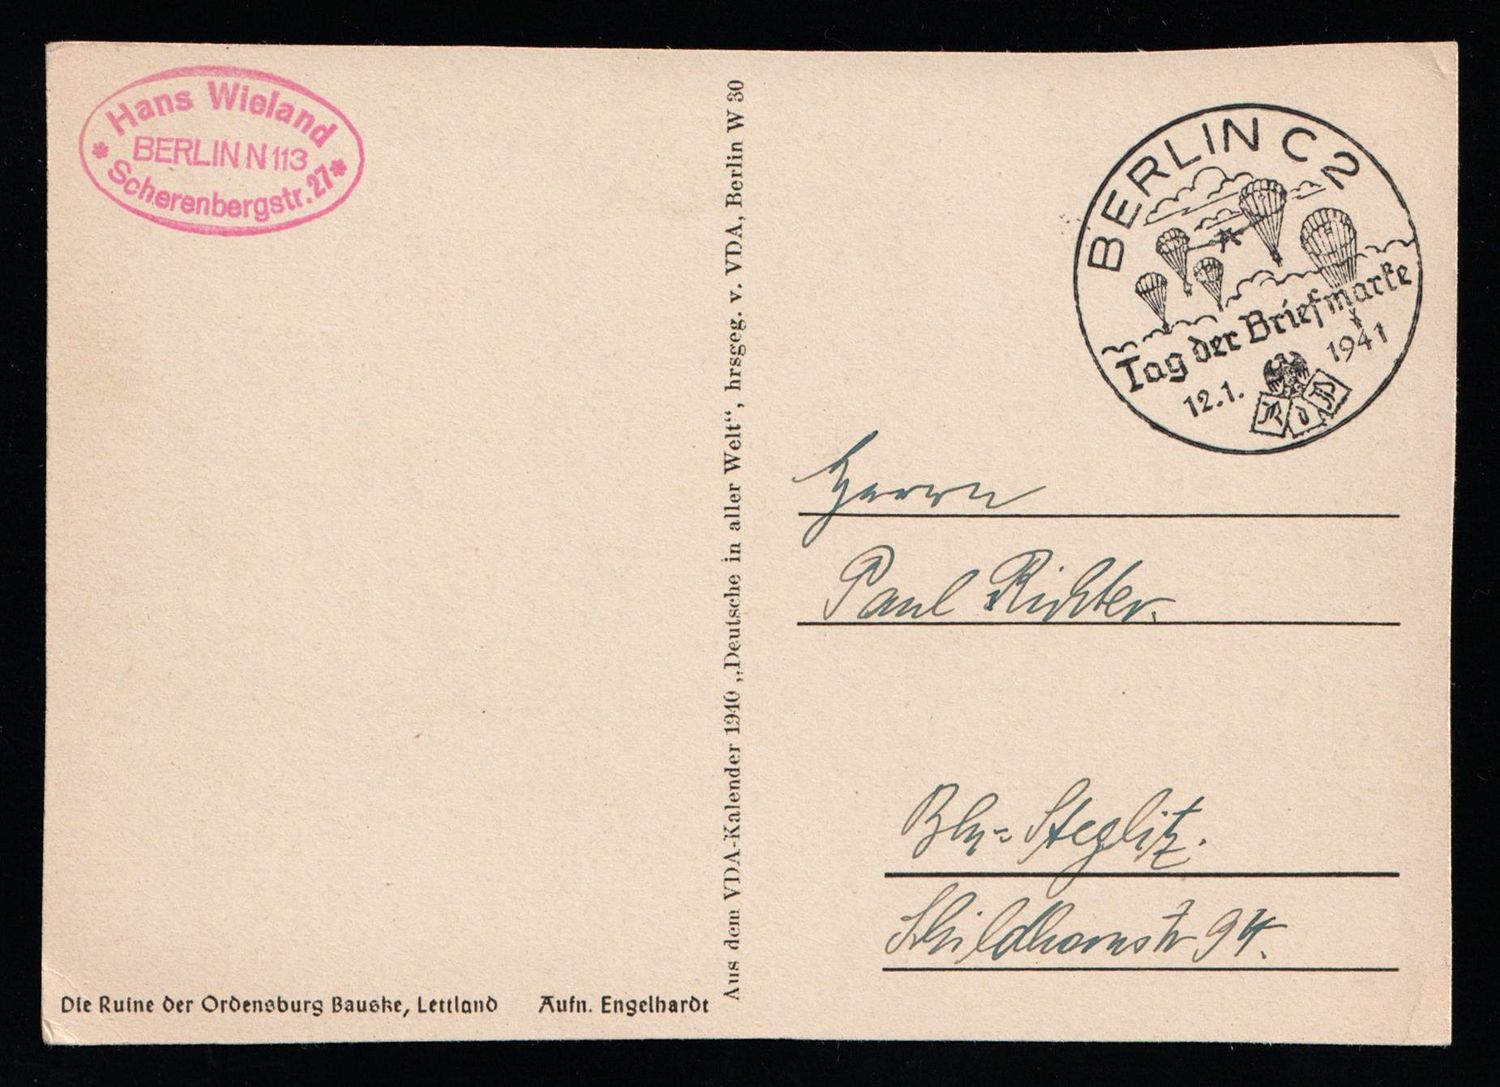 Hans Wieland
BERLIN N 113
* Scherenbergstr. 27 *
Aus dem VDA-Kalender 1940 „Deutsche in aller Welt“, hrsgeg. v. VDA, Berlin W 30
BERLIN C 2
Tag der Briefmarke
12.1. 1941
R d P
Herrn
Paul Richter.
Bln=Steglitz.
Schildhornstr 94.
Die Ruine der Ordensburg Bauske, Lettland Aufn. Engelhardt